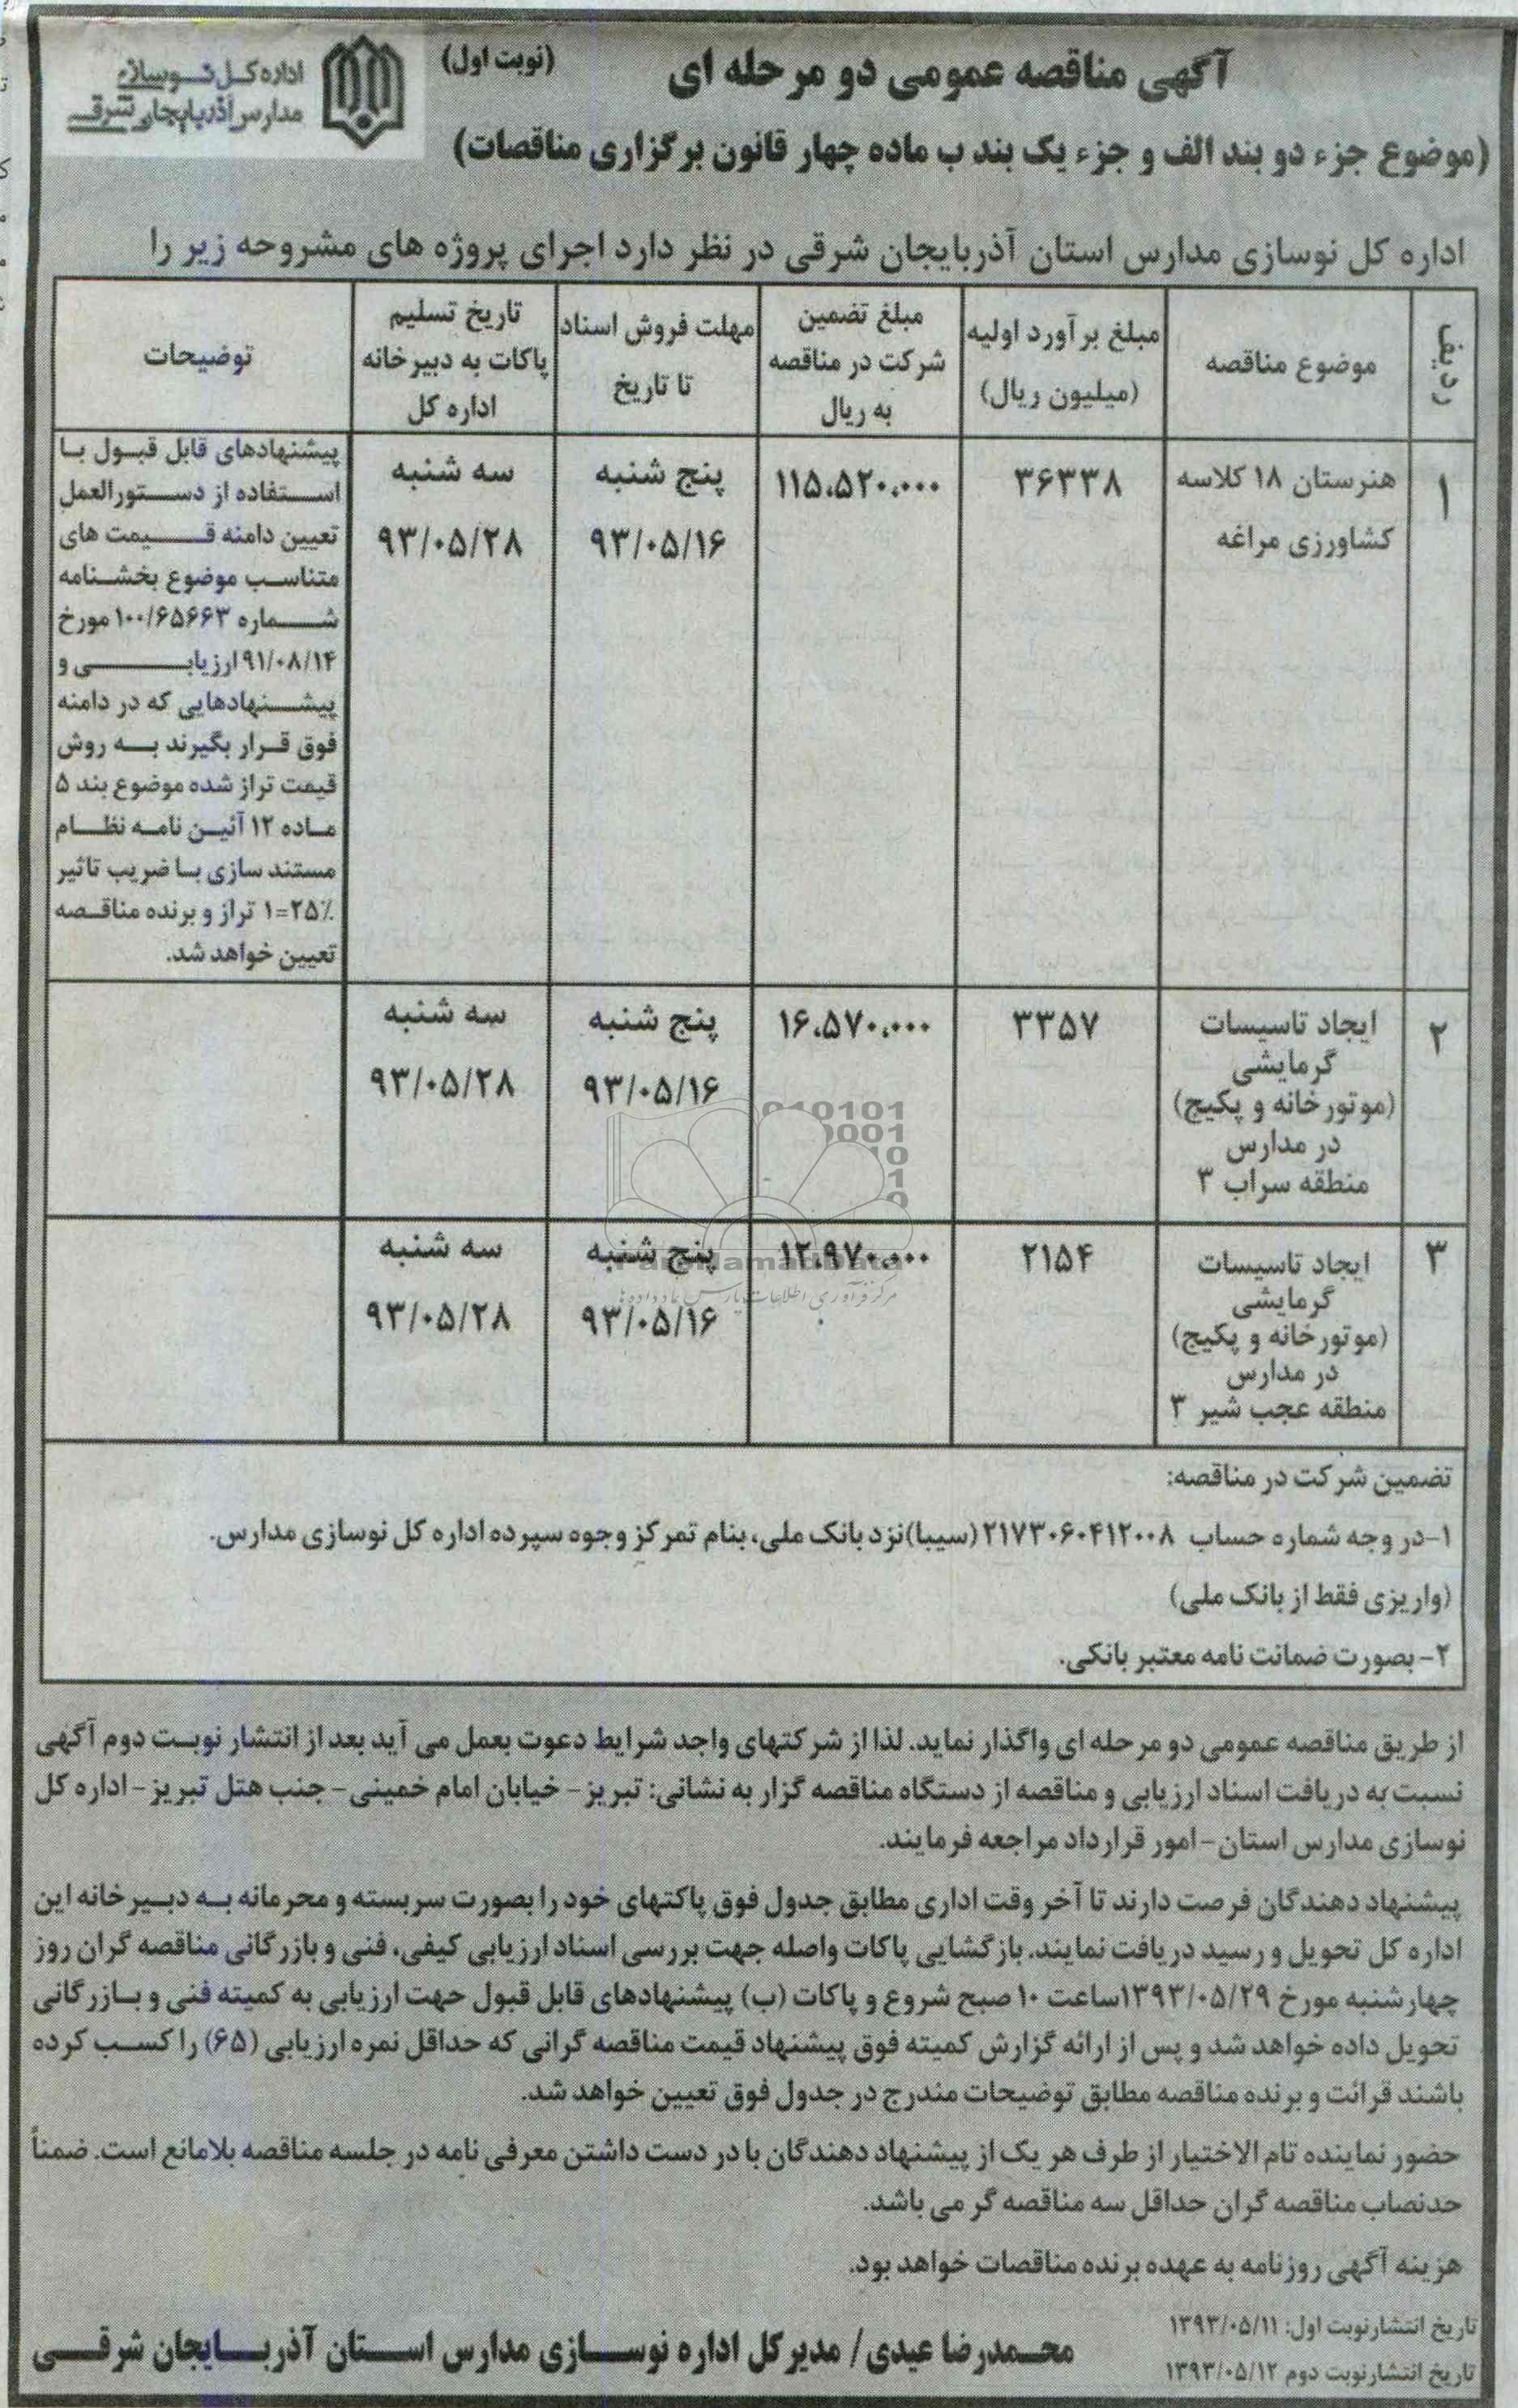 آگهی مناقصه عمومی دو مرحله ای
(نوبت اول)
اداره کل نوسازی
مدارس آذربایجان شرقی
(موضوع جزء دو بند الف و جزء یک بند ب ماده چهار قانون برگزاری مناقصات)
اداره کل نوسازی مدارس استان آذربایجان شرقی در نظر دارد اجرای پروژه های مشروحه زیر را
ردیف
موضوع مناقصه
مبلغ برآورد اولیه
(میلیون ریال)
مبلغ تضمین
شرکت در مناقصه
به ریال
مهلت فروش اسناد
تا تاریخ
تاریخ تسلیم
پاکات به دبیرخانه
اداره کل
توضیحات
۱
هنرستان ۱۸ کلاسه
کشاورزی مراغه
۳۶۳۳۸
۱۱۵،۵۲۰،۰۰۰
پنج شنبه
۹۳/۰۵/۱۶
سه شنبه
۹۳/۰۵/۲۸
پیشنهادهای قابل قبول با
استفاده از دستورالعمل
تعیین دامنه قیمت های
متناسب موضوع بخشنامه
شماره ۱۰۰/۶۵۶۶۳ مورخ
۹۱/۰۸/۱۴ ارزیابی و
پیشنهادهایی که در دامنه
فوق قرار بگیرند به روش
قیمت تراز شده موضوع بند ۵
ماده ۱۲ آئین نامه نظام
مستند سازی با ضریب تاثیر
۲۵٪=۱ تراز و برنده مناقصه
تعیین خواهد شد.
۲
ایجاد تاسیسات
گرمایشی
(موتورخانه و پکیج)
در مدارس
منطقه سراب ۳
۳۳۵۷
۱۶،۵۷۰،۰۰۰
پنج شنبه
۹۳/۰۵/۱۶
سه شنبه
۹۳/۰۵/۲۸
۳
ایجاد تاسیسات
گرمایشی
(موتورخانه و پکیج)
در مدارس
منطقه عجب شیر ۳
۲۱۵۴
۱۲،۹۷۰،۰۰۰
پنج شنبه
۹۳/۰۵/۱۶
سه شنبه
۹۳/۰۵/۲۸
ParsNamadData
مرکز فرآوری اطلاعات پارس نماد داده ها
تضمین شرکت در مناقصه:
۱-در وجه شماره حساب ۲۱۷۳۰۶۰۴۱۲۰۰۸ (سیبا) نزد بانک ملی، بنام تمرکز وجوه سپرده اداره کل نوسازی مدارس.
(واریزی فقط از بانک ملی)
۲- بصورت ضمانت نامه معتبر بانکی.
از طریق مناقصه عمومی دو مرحله ای واگذار نماید. لذا از شرکتهای واجد شرایط دعوت بعمل می آید بعد از انتشار نوبت دوم آگهی
نسبت به دریافت اسناد ارزیابی و مناقصه از دستگاه مناقصه گزار به نشانی: تبریز- خیابان امام خمینی - جنب هتل تبریز - اداره کل
نوسازی مدارس استان - امور قرارداد مراجعه فرمایند.
پیشنهاد دهندگان فرصت دارند تا آخر وقت اداری مطابق جدول فوق پاکتهای خود را بصورت سربسته و محرمانه به دبیرخانه این
اداره کل تحویل و رسید دریافت نمایند. بازگشایی پاکات واصله جهت بررسی اسناد ارزیابی کیفی، فنی و بازرگانی مناقصه گران روز
چهارشنبه مورخ ۱۳۹۳/۰۵/۲۹ ساعت ۱۰ صبح شروع و پاکات (ب) پیشنهادهای قابل قبول جهت ارزیابی به کمیته فنی و بازرگانی
تحویل داده خواهد شد و پس از ارائه گزارش کمیته فوق پیشنهاد قیمت مناقصه گرانی که حداقل نمره ارزیابی (۶۵) را کسب کرده
باشند قرائت و برنده مناقصه مطابق توضیحات مندرج در جدول فوق تعیین خواهد شد.
حضور نماینده تام الاختیار از طرف هر یک از پیشنهاد دهندگان با در دست داشتن معرفی نامه در جلسه مناقصه بلامانع است. ضمناً
حدنصاب مناقصه گران حداقل سه مناقصه گر می باشد.
هزینه آگهی روزنامه به عهده برنده مناقصات خواهد بود.
تاریخ انتشار نوبت اول: ۱۳۹۳/۰۵/۱۱
تاریخ انتشار نوبت دوم ۱۳۹۳/۰۵/۱۲
محمدرضا عیدی/ مدیرکل اداره نوسازی مدارس استان آذربایجان شرقی